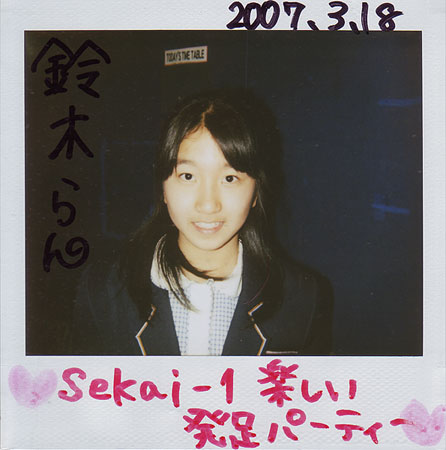 2007.3.18
TODAY'S TIME TABLE
鈴木らん
Sekai-1 楽しい
発足パーティー